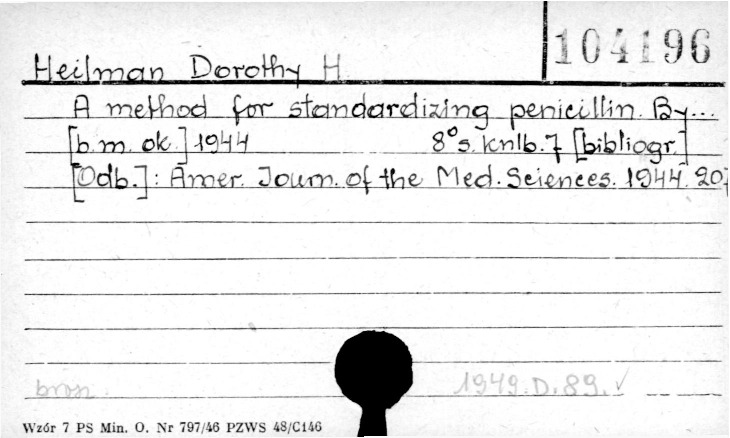 104196
Heilman Dorothy H.
A method for standardizing penicillin. By...
[b.m. ok.] 1944 8°s. knlb. 7 [bibliogr.]
[Odb.]: Amer. Journ. of the Med. Sciences. 1944. 207
bron. 1949.D.89. ✓
Wzór 7 PS Min. O. Nr 797/46 PZWS 48/C146